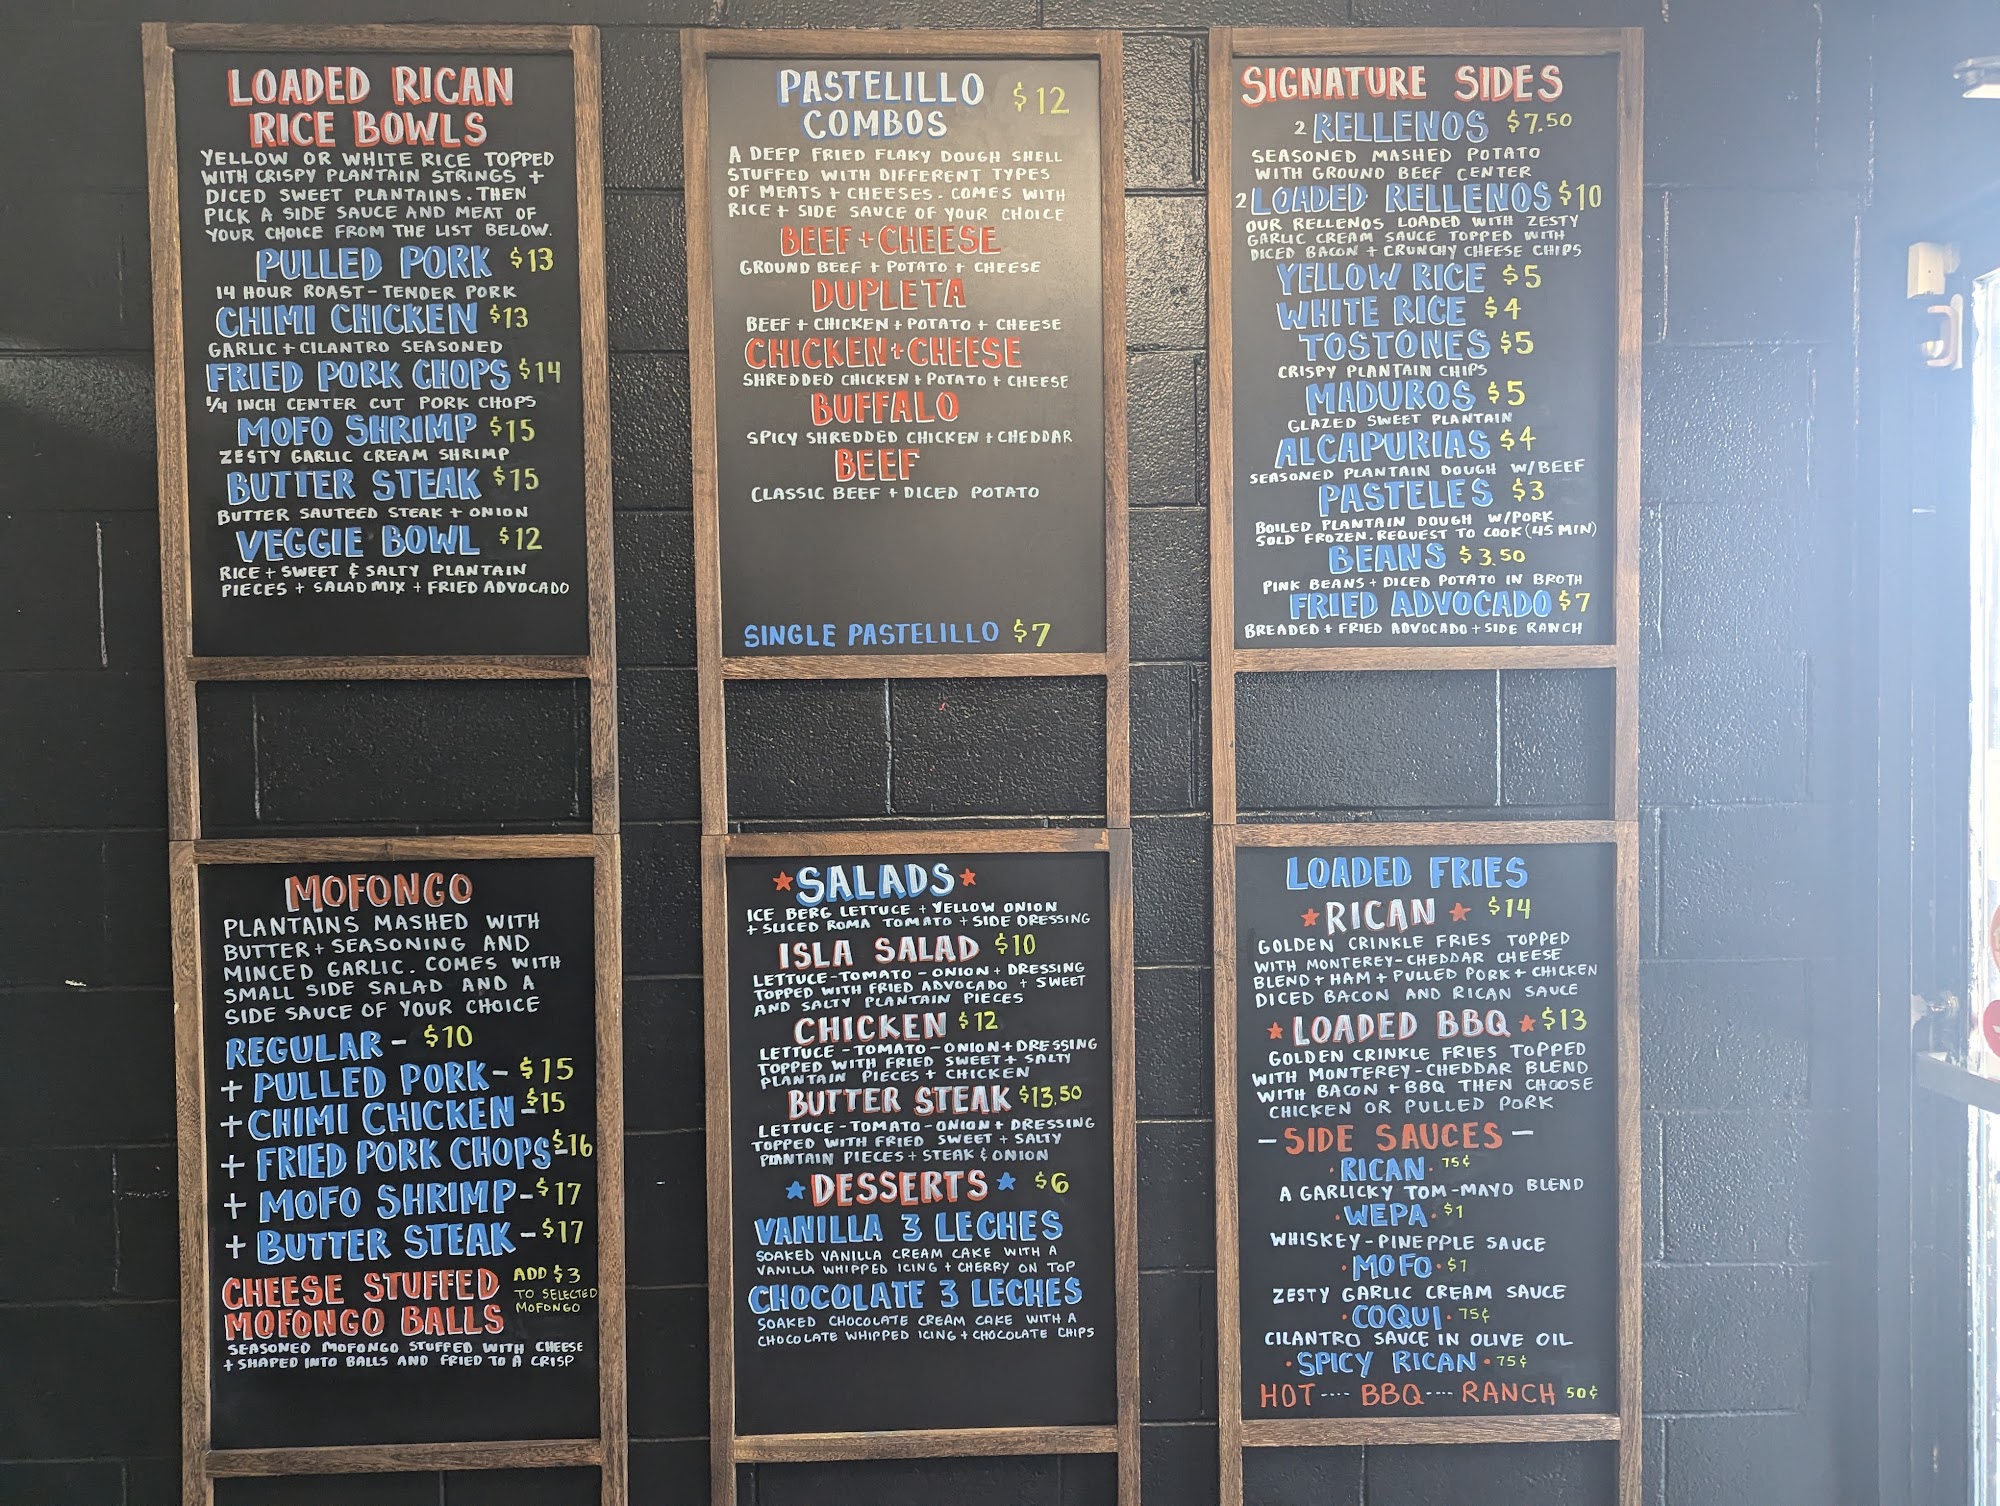 LOADED RICAN
RICE BOWLS
YELLOW OR WHITE RICE TOPPED
WITH CRISPY PLANTAIN STRINGS +
DICED SWEET PLANTAINS. THEN
PICK A SIDE SAUCE AND MEAT OF
YOUR CHOICE FROM THE LIST BELOW.
PULLED PORK $13
14 HOUR ROAST - TENDER PORK
CHIMI CHICKEN $13
GARLIC + CILANTRO SEASONED
FRIED PORK CHOPS $14
1/4 INCH CENTER CUT PORK CHOPS
MOFO SHRIMP $15
ZESTY GARLIC CREAM SHRIMP
BUTTER STEAK $15
BUTTER SAUTEED STEAK + ONION
VEGGIE BOWL $12
RICE + SWEET & SALTY PLANTAIN
PIECES + SALAD MIX + FRIED ADVOCADO
PASTELILLO $12
COMBOS
A DEEP FRIED FLAKY DOUGH SHELL
STUFFED WITH DIFFERENT TYPES
OF MEATS + CHEESES. COMES WITH
RICE + SIDE SAUCE OF YOUR CHOICE
BEEF + CHEESE
GROUND BEEF + POTATO + CHEESE
DUPLETA
BEEF + CHICKEN + POTATO + CHEESE
CHICKEN + CHEESE
SHREDDED CHICKEN + POTATO + CHEESE
BUFFALO
SPICY SHREDDED CHICKEN + CHEDDAR
BEEF
CLASSIC BEEF + DICED POTATO
SINGLE PASTELILLO $7
SIGNATURE SIDES
2 RELLENOS $7.50
SEASONED MASHED POTATO
WITH GROUND BEEF CENTER
2 LOADED RELLENOS $10
OUR RELLENOS LOADED WITH ZESTY
GARLIC CREAM SAUCE TOPPED WITH
DICED BACON + CRUNCHY CHEESE CHIPS
YELLOW RICE $5
WHITE RICE $4
TOSTONES $5
CRISPY PLANTAIN CHIPS
MADUROS $5
GLAZED SWEET PLANTAIN
ALCAPURIAS $4
SEASONED PLANTAIN DOUGH W/BEEF
PASTELES $3
BOILED PLANTAIN DOUGH W/PORK
SOLD FROZEN. REQUEST TO COOK (45 MIN)
BEANS $3.50
PINK BEANS + DICED POTATO IN BROTH
FRIED ADVOCADO $7
BREADED + FRIED ADVOCADO + SIDE RANCH
MOFONGO
PLANTAINS MASHED WITH
BUTTER + SEASONING AND
MINCED GARLIC. COMES WITH
SMALL SIDE SALAD AND A
SIDE SAUCE OF YOUR CHOICE
REGULAR - $10
+ PULLED PORK - $15
+ CHIMI CHICKEN - $15
+ FRIED PORK CHOPS - $16
+ MOFO SHRIMP - $17
+ BUTTER STEAK - $17
CHEESE STUFFED ADD $3
TO SELECTED
MOFONGO BALLS MOFONGO
SEASONED MOFONGO STUFFED WITH CHEESE
+ SHAPED INTO BALLS AND FRIED TO A CRISP
SALADS
ICE BERG LETTUCE + YELLOW ONION
+ SLICED ROMA TOMATO + SIDE DRESSING
ISLA SALAD $10
LETTUCE - TOMATO - ONION + DRESSING
TOPPED WITH FRIED ADVOCADO + SWEET
AND SALTY PLANTAIN PIECES
CHICKEN $12
LETTUCE - TOMATO - ONION + DRESSING
TOPPED WITH FRIED SWEET + SALTY
PLANTAIN PIECES + CHICKEN
BUTTER STEAK $13.50
LETTUCE - TOMATO - ONION + DRESSING
TOPPED WITH FRIED SWEET + SALTY
PLANTAIN PIECES + STEAK & ONION
DESSERTS $6
VANILLA 3 LECHES
SOAKED VANILLA CREAM CAKE WITH A
VANILLA WHIPPED ICING + CHERRY ON TOP
CHOCOLATE 3 LECHES
SOAKED CHOCOLATE CREAM CAKE WITH A
CHOCOLATE WHIPPED ICING + CHOCOLATE CHIPS
LOADED FRIES
RICAN $14
GOLDEN CRINKLE FRIES TOPPED
WITH MONTEREY-CHEDDAR CHEESE
BLEND + HAM + PULLED PORK + CHICKEN
DICED BACON AND RICAN SAUCE
LOADED BBQ $13
GOLDEN CRINKLE FRIES TOPPED
WITH MONTEREY-CHEDDAR BLEND
WITH BACON + BBQ THEN CHOOSE
CHICKEN OR PULLED PORK
- SIDE SAUCES -
· RICAN · 75¢
A GARLICKY TOM-MAYO BLEND
· WEPA · $1
WHISKEY-PINEPPLE SAUCE
· MOFO · $1
ZESTY GARLIC CREAM SAUCE
· COQUI · 75¢
CILANTRO SAUCE IN OLIVE OIL
· SPICY RICAN · 75¢
HOT ---- BBQ ---- RANCH 50¢